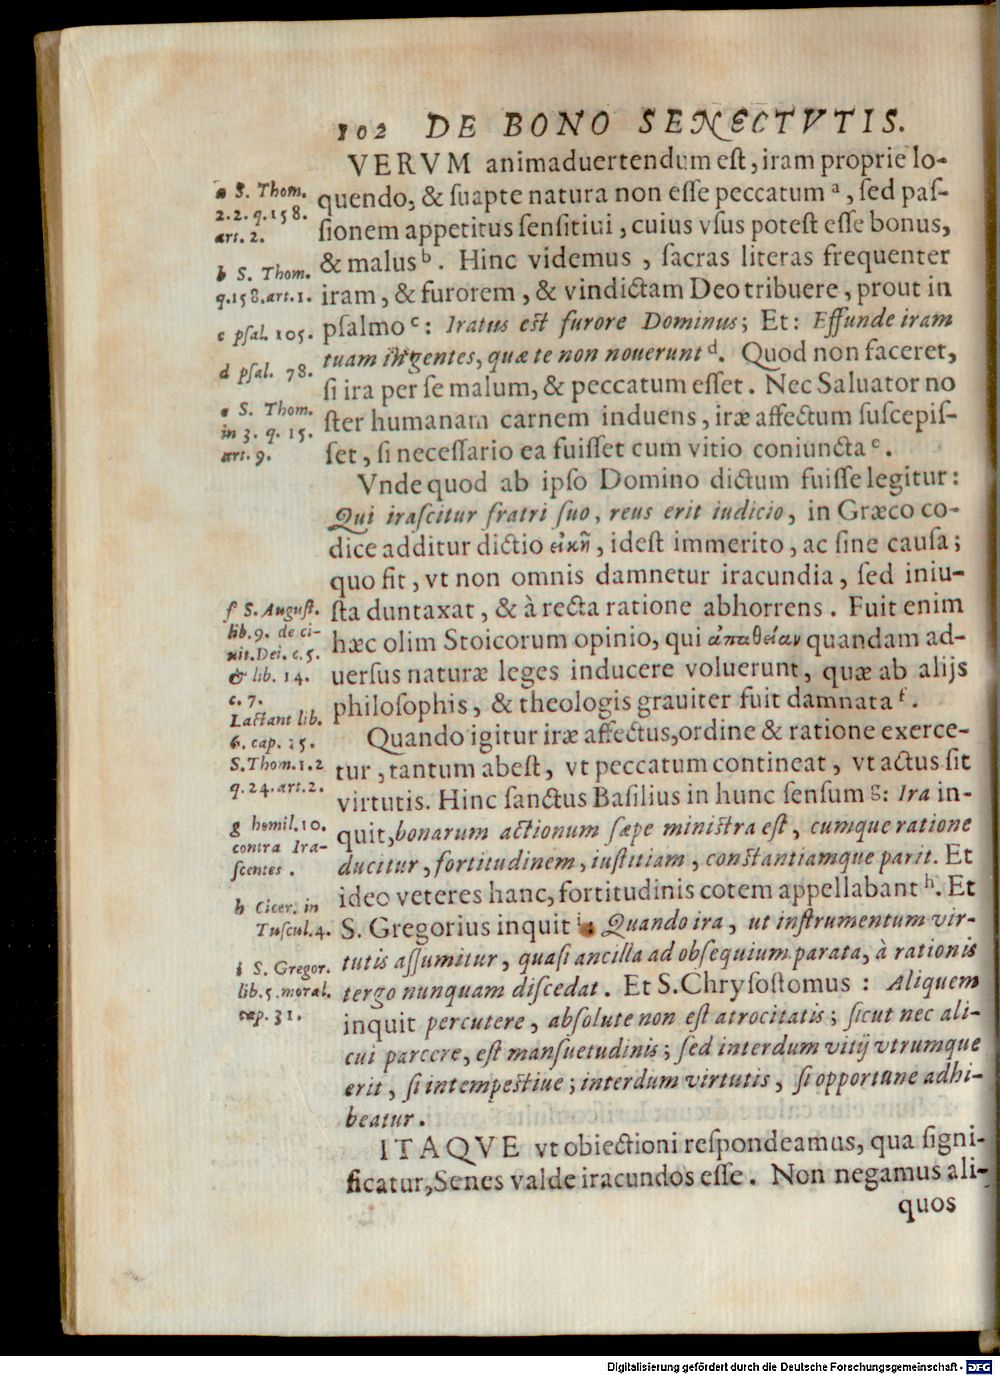 102 DE BONO SENECTVTIS.
VERVM animaduertendum est, iram proprie lo-
quendo, & suapte natura non esse peccatum a, sed pas-
sionem appetitus sensitiui, cuius vsus potest esse bonus,
& malus b. Hinc videmus, sacras literas frequenter
iram, & furorem, & vindictam Deo tribuere, prout in
psalmo c: Iratus est furore Dominus; Et: Effunde iram
tuam in gentes, quæ te non nouerunt d. Quod non faceret,
si ira per se malum, & peccatum esset. Nec Saluator no
ster humanam carnem induens, iræ affectum suscepis-
set, si necessario ea fuisset cum vitio coniuncta e.
Vnde quod ab ipso Domino dictum fuisse legitur:
Qui irascitur fratri suo, reus erit iudicio, in Græco co-
dice additur dictio εἰκῆ, idest immerito, ac sine causa;
quo fit, vt non omnis damnetur iracundia, sed iniu-
sta duntaxat, & à recta ratione abhorrens. Fuit enim
hæc olim Stoicorum opinio, qui ἀπαθείαν quandam ad-
uersus naturæ leges inducere voluerunt, quæ ab alijs
philosophis, & theologis grauiter fuit damnata f.
Quando igitur iræ affectus, ordine & ratione exerce-
tur, tantum abest, vt peccatum contineat, vt actus sit
virtutis. Hinc sanctus Basilius in hunc sensum g: Ira in-
quit, bonarum actionum sæpe ministra est, cumque ratione
ducitur, fortitudinem, iustitiam, constantiamque parit. Et
ideo veteres hanc, fortitudinis cotem appellabant h. Et
S. Gregorius inquit i: Quando ira, ut instrumentum vir-
tutis assumitur, quasi ancilla ad obsequium parata, à rationis
tergo nunquam discedat. Et S. Chrysostomus: Aliquem
inquit percutere, absolute non est atrocitatis; sicut nec ali-
cui parcere, est mansuetudinis; sed interdum vitij vtrumque
erit, si intempestiue; interdum virtutis, si opportune adhi-
beatur.
ITAQVE vt obiectioni respondeamus, qua signi-
ficatur, Senes valde iracundos esse. Non negamus ali-
quos
a S. Thom.
2.2. q.158.
art. 2.
b S. Thom.
q.158.art.1.
c psal. 105.
d psal. 78.
e S. Thom.
in 3. q. 15.
art. 9.
f S. August.
lib.9. de ci-
uit.Dei. c.5.
& lib. 14.
c. 7.
Lactant lib.
6. cap. 15.
S.Thom.1.2
q.24.art.2.
g homil.10.
contra Ira-
scentes.
h Cicer. in
Tuscul.4.
i S. Gregor.
lib.5.moral.
cap. 31.
Digitalisierung gefördert durch die Deutsche Forschungsgemeinschaft - DFG